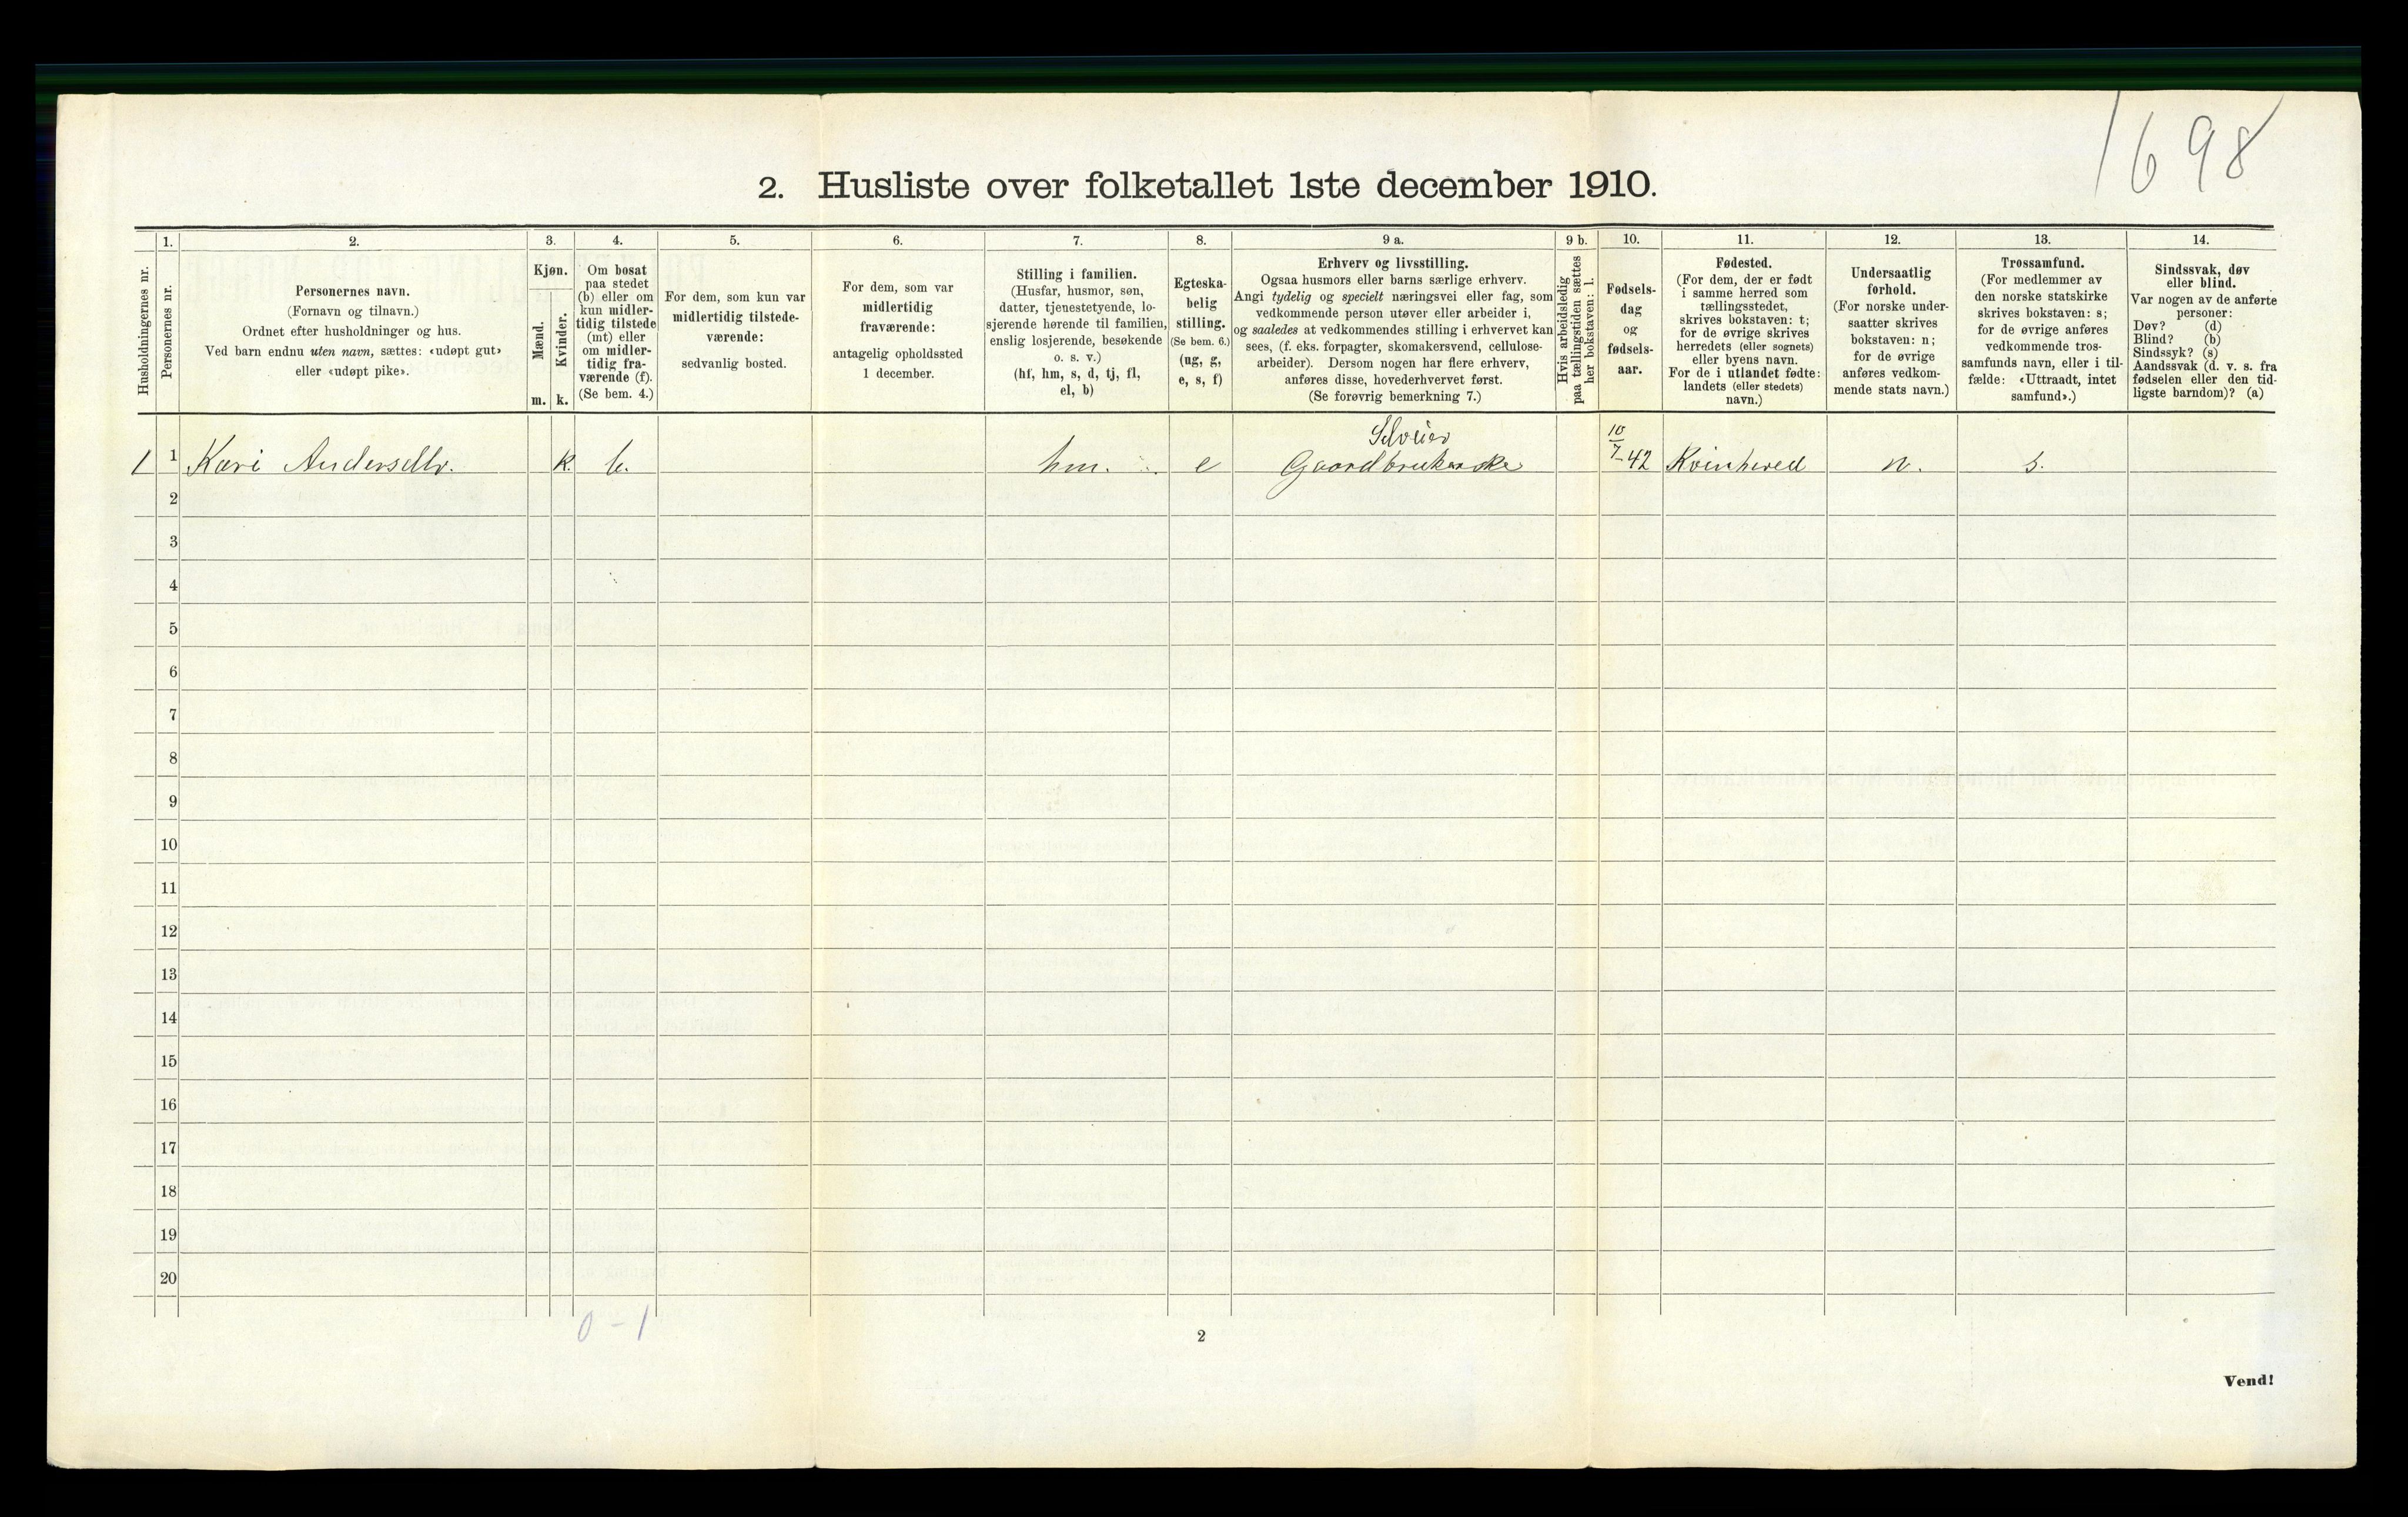 1698
2. Husliste over folketallet 1ste december 1910.
Husholdningernes nr.
1.
Personernes nr.
2.
Personernes navn.
(Fornavn og tilnavn.)
Ordnet efter husholdninger og hus.
Ved barn endnu uten navn, sættes: «udøpt gut»
eller «udøpt pike».
3.
Kjøn.
Mænd.
Kvinder.
m. k.
4.
Om bosat
paa stedet
(b) eller om
kun midler-
tidig tilstede
(mt) eller
om midler-
tidig fra-
værende (f).
(Se bem. 4.)
5.
For dem, som kun var
midlertidig tilstede-
værende:
sedvanlig bosted.
6.
For dem, som var
midlertidig
fraværende:
antagelig opholdssted
1 december.
7.
Stilling i familien.
(Husfar, husmor, søn,
datter, tjenestetyende, lo-
sjerende hørende til familien,
enslig losjerende, besøkende
o. s. v.)
(hf, hm, s, d, tj, fl,
el, b)
8.
Egteska-
belig
stilling.
(Se bem. 6.)
(ug, g,
e, s, f)
9 a.
Erhverv og livsstilling.
Ogsaa husmors eller barns særlige erhverv.
Angi tydelig og specielt næringsvei eller fag, som
vedkommende person utøver eller arbeider i,
og saaledes at vedkommendes stilling i erhvervet kan
sees, (f. eks. forpagter, skomakersvend, cellulose-
arbeider). Dersom nogen har flere erhverv,
anføres disse, hovederhvervet først.
(Se forøvrig bemerkning 7.)
9 b.
Hvis arbeidsledig
paa tællingstiden sættes
her bokstaven: l.
10.
Fødsels-
dag
og
fødsels-
aar.
11.
Fødested.
(For dem, der er født
i samme herred som
tællingsstedet,
skrives bokstaven: t;
for de øvrige skrives
herredets (eller sognets)
eller byens navn.
For de i utlandet fødte:
landets (eller stedets)
navn.)
12.
Undersaatlig
forhold.
(For norske under-
saatter skrives
bokstaven: n;
for de øvrige
anføres vedkom-
mende stats navn.)
13.
Trossamfund.
(For medlemmer av
den norske statskirke
skrives bokstaven: s;
for de øvrige anføres
vedkommende tros-
samfunds navn, eller i til-
fælde: «Uttraadt, intet
samfund».)
14.
Sindssvak, døv
eller blind.
Var nogen av de anførte
personer:
Døv? (d)
Blind? (b)
Sindssyk? (s)
Aandssvak (d. v. s. fra
fødselen eller den tid-
ligste barndom)? (a)
1 1 Kari Andersdtr. k. b. hm. e Selveier Gaardbrukerske 10/7-42 Kvinhered n. s.
2
3
4
5
6
7
8
9
10
11
12
13
14
15
16
17
18
19
20
0 - 1
2
Vend!